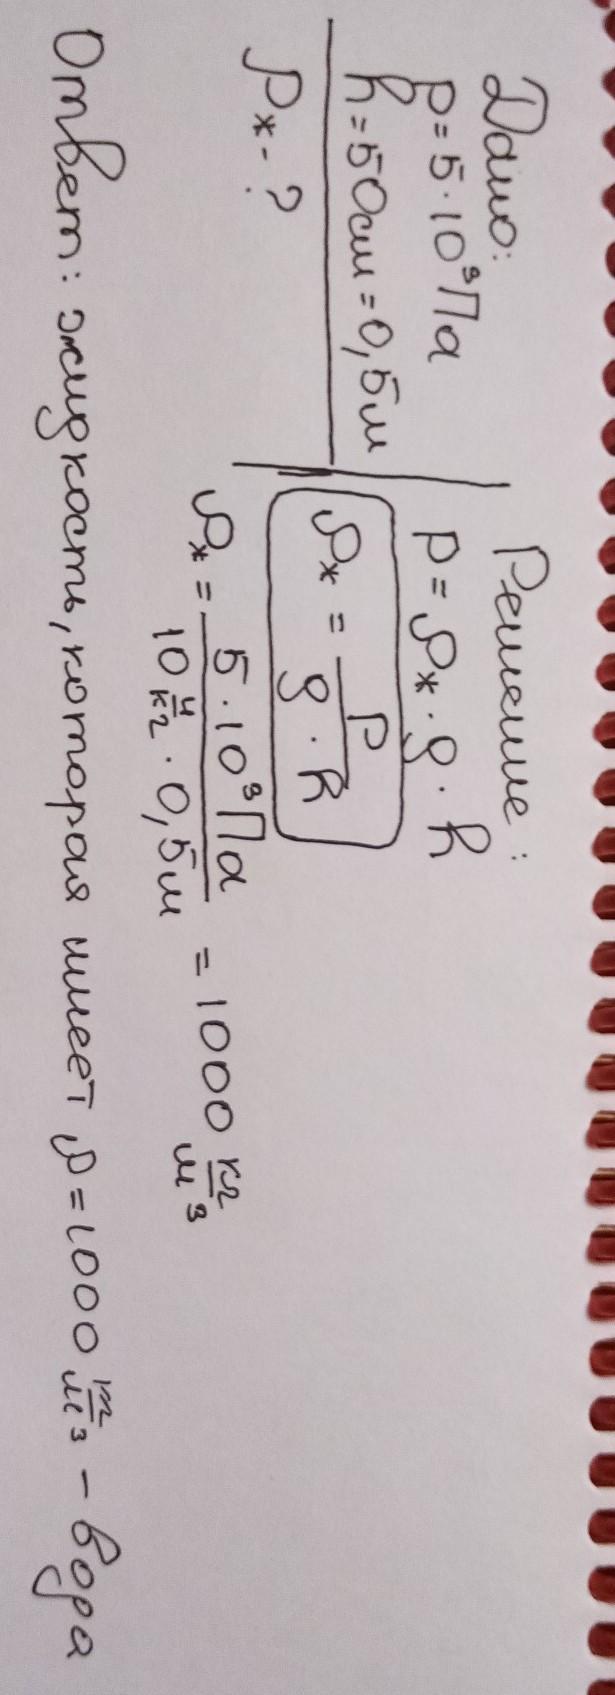 Дано:
p = 5·10³Па
h = 50см = 0,5м
ρж - ?
Решение:
p = ρж · g · h
ρж = p / g · h
ρж = 5·10³Па / 10 н/кг · 0,5м = 1000 кг/м³
Ответ: жидкость, которая имеет ρ = 1000 кг/м³ - вода